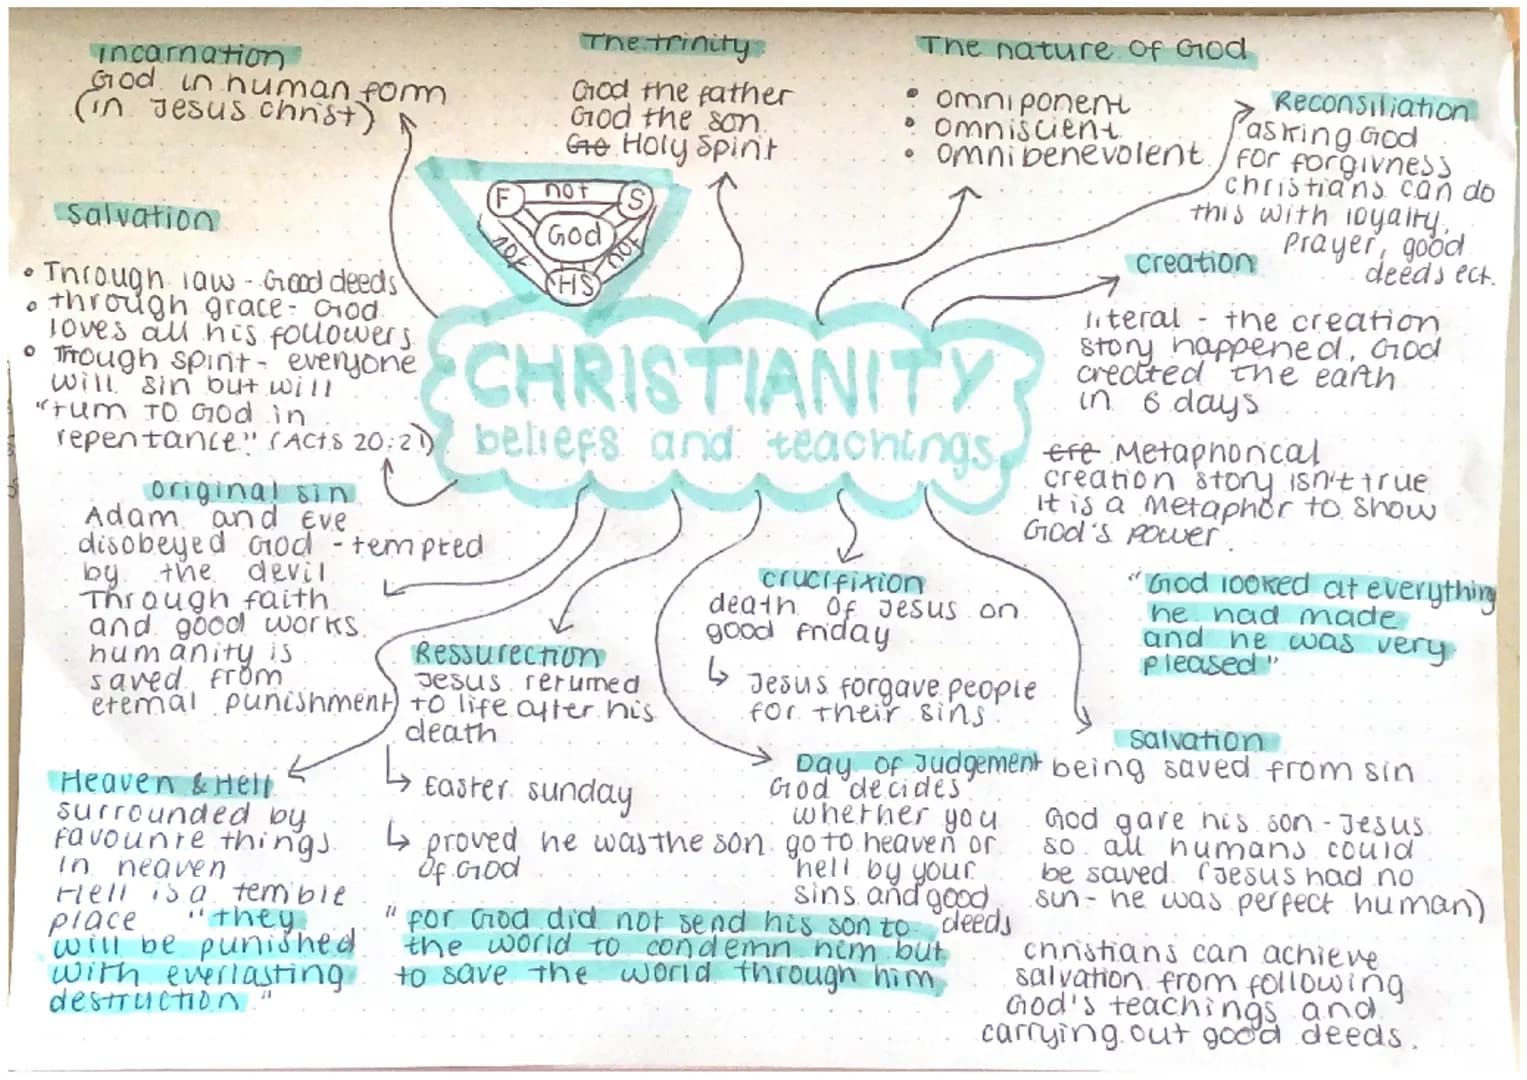 Incarnation
God in human form
(in Jesus Christ)
The trinity
God the father
God the son
Go Holy Spirit
The nature of God
• omniponent
• omniscient
• omnibenevolent
Reconsiliation
asking God
for forgivness
christians can do
this with loyalty,
prayer, good
deeds ect.
F not S
God
not not
HS
Salvation
• Through law - Good deeds
• through grace - God
loves all his followers
• Through spirit - everyone
will sin but will
"turn to God in
repentance." (Acts 20:21)
creation
literal - the creation
story happened. God
created the earth
in 6 days
cre Metaphorical
creation story isn't true
it is a metaphor to show
God's power.
"God looked at everything
he had made
and he was very
pleased"
CHRISTIANITY
beliefs and teachings
original sin
Adam and Eve
disobeyed God - tempted
by the devil
Through faith
and good works
humanity is
saved from
eternal punishment
Ressurection
Jesus returned
to life after his
death
↳ Easter sunday
↳ proved he was the son
of God
crucifixion
death of Jesus on
good friday
↳ Jesus forgave people
for their sins
Day of Judgement
God decides
whether you
go to heaven or
hell by your
sins and good
deeds
Salvation
being saved from sin
God gave his son - Jesus
so all humans could
be saved (Jesus had no
sin - he was perfect human)
christians can achieve
salvation from following
God's teachings and
carrying out good deeds.
Heaven & Hell
surrounded by
favourite things
in heaven
Hell is a terrible
place "they
will be punished
with everlasting
destruction"
"for God did not send his son to
the world to condemn him but
to save the world through him